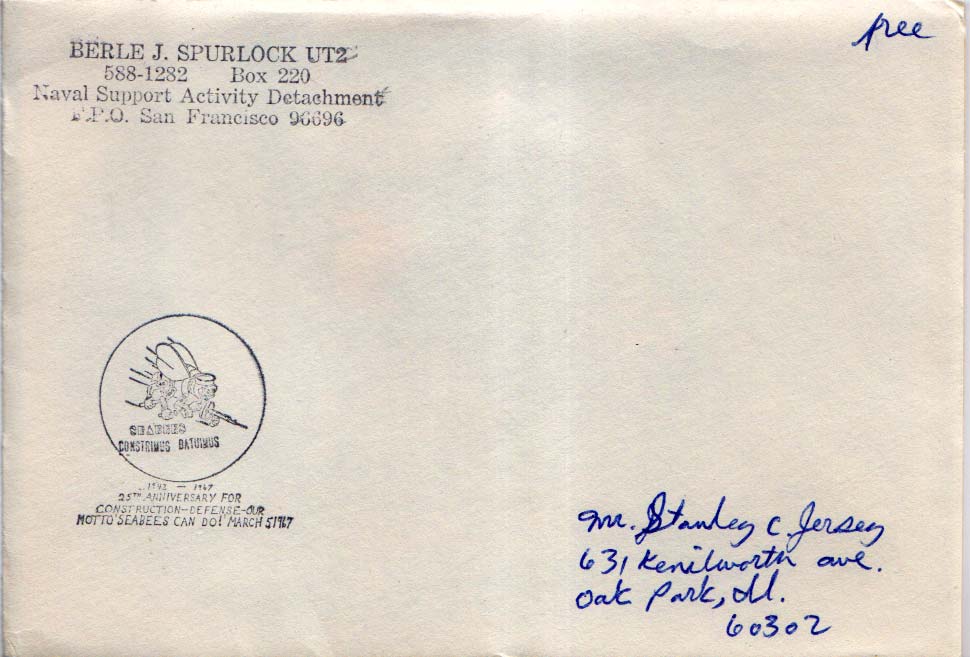 BERLE J. SPURLOCK UT2
588-1282 Box 220
Naval Support Activity Detachment
F.P.O. San Francisco 96696
free
SEABEES
CONSTRIMUS BATUIMUS
1942 — 1967
25TH ANNIVERSARY FOR
CONSTRUCTION-DEFENSE-OUR
MOTTO "SEABEES CAN DO! MARCH 5 1967
Mr. Stanley C. Jersey
631 Kenilworth ave.
Oak Park, Ill.
60302